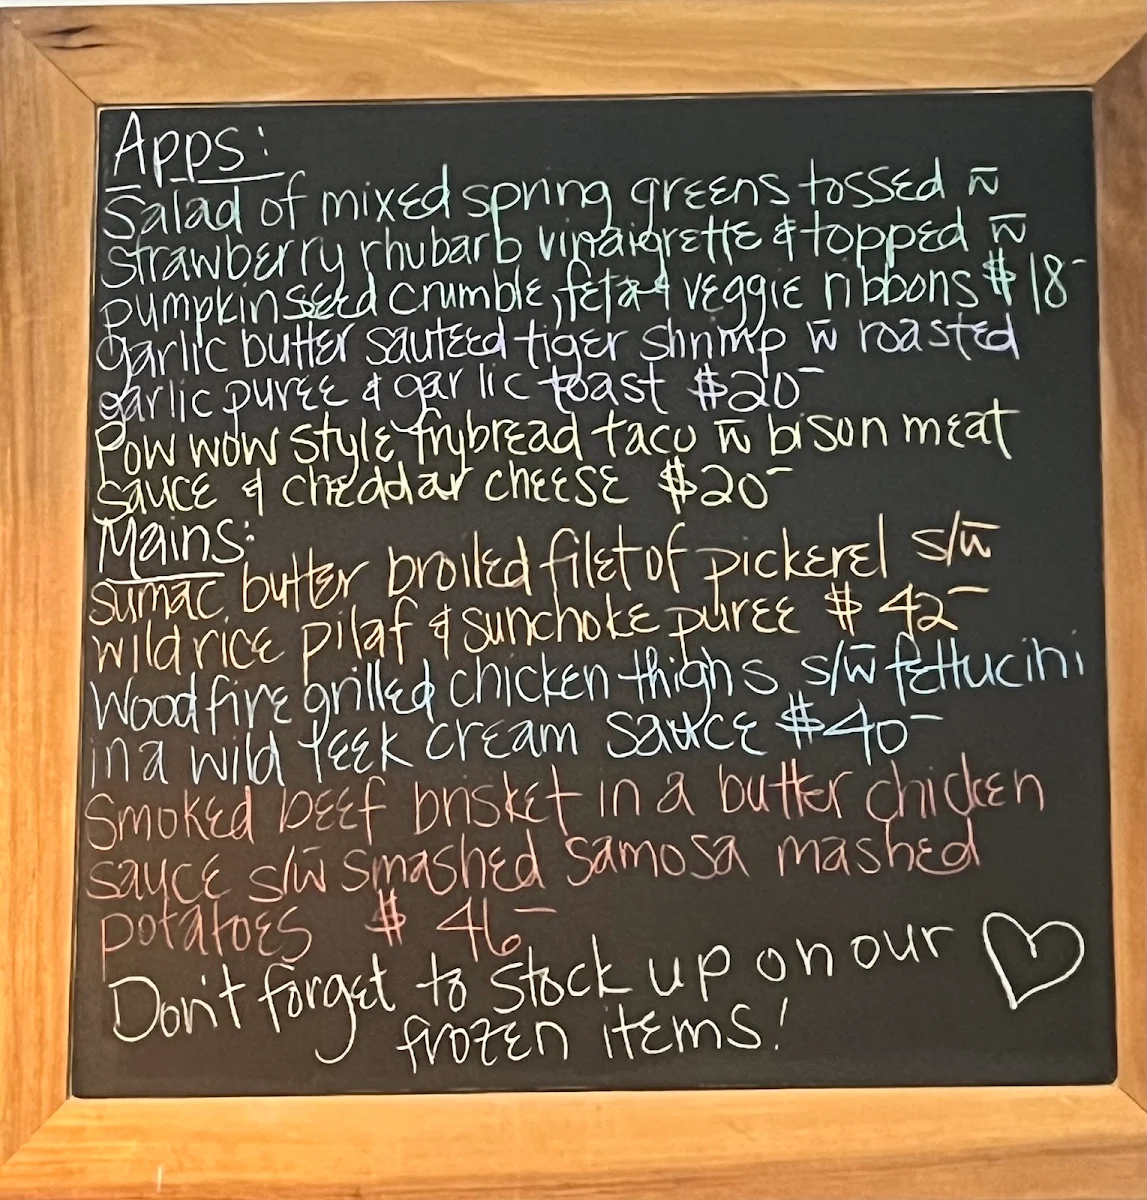 Apps:
Salad of mixed spring greens tossed w̄
strawberry rhubarb vinaigrette & topped w̄
pumpkin seed crumble, feta & veggie ribbons $18-
garlic butter sauteed tiger shrimp w̄ roasted
garlic puree & garlic toast $20-
Pow wow style frybread taco w̄ bison meat
sauce & cheddar cheese $20-
Mains:
sumac butter broiled filet of pickerel s/w̄
wild rice pilaf & sunchoke puree $42-
Woodfire grilled chicken thighs s/w̄ fettucini
in a wild leek cream sauce $40-
Smoked beef brisket in a butter chicken
sauce s/w̄ smashed samosa mashed
potatoes $46-
Don't forget to stock up on our
frozen items!